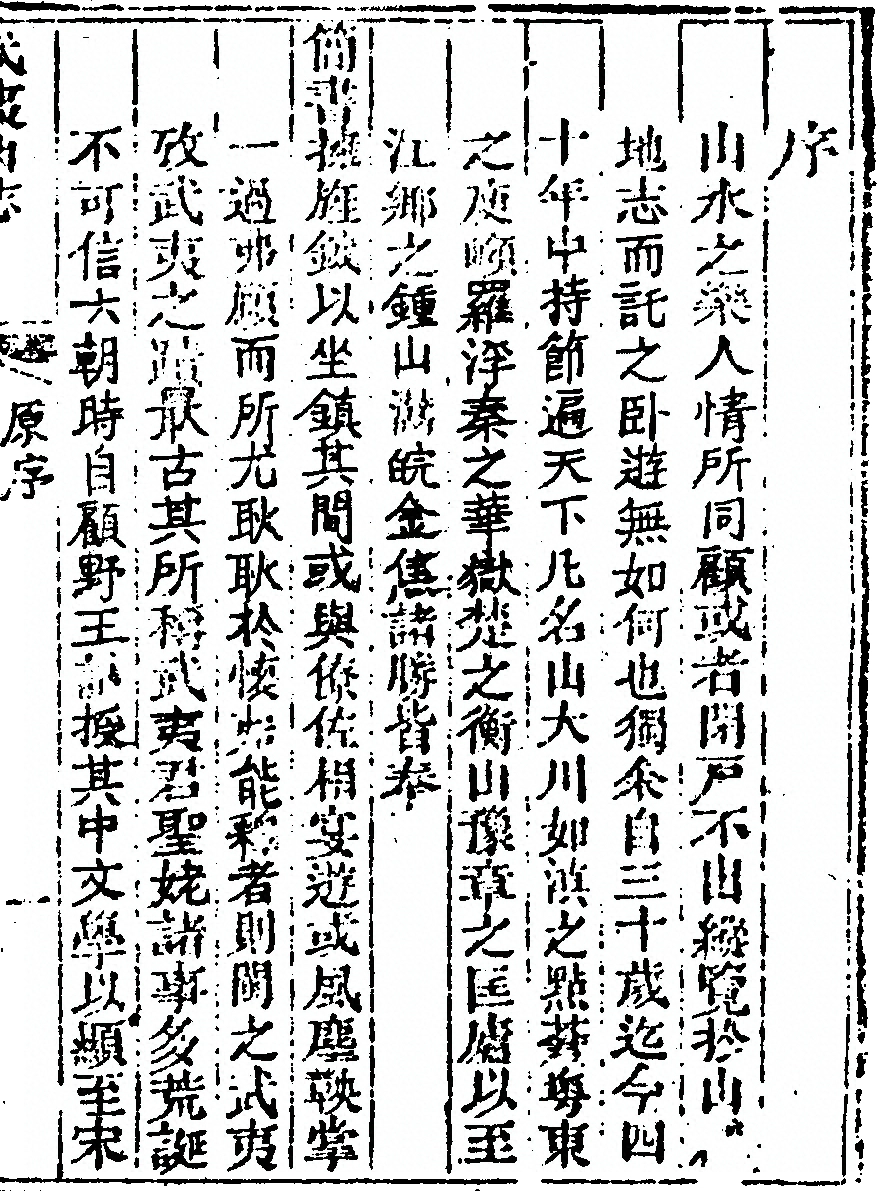 序
山水之樂人情所同顧或者閉戶不出縱覽於山
地志而託之卧遊無如何也獨余自三十歲迄今四
十年中持節遍天下凡名山大川如滇之點蒼粵東
之庾嶺羅浮秦之華嶽楚之衡山豫章之匡廬以至
江鄉之鍾山灊皖金焦諸勝皆奉
簡書擁旌鉞以坐鎮其間或與僚佐相宴遊或風塵鞅掌
一過弗願而所尤耿耿於懷
能釋者則閩之武夷
攷武夷之蹟最古其所稱武夷君聖姥諸事多荒誕
不可信六朝時自顧野王
授其中文學以顯至宋
武夷山志
原序